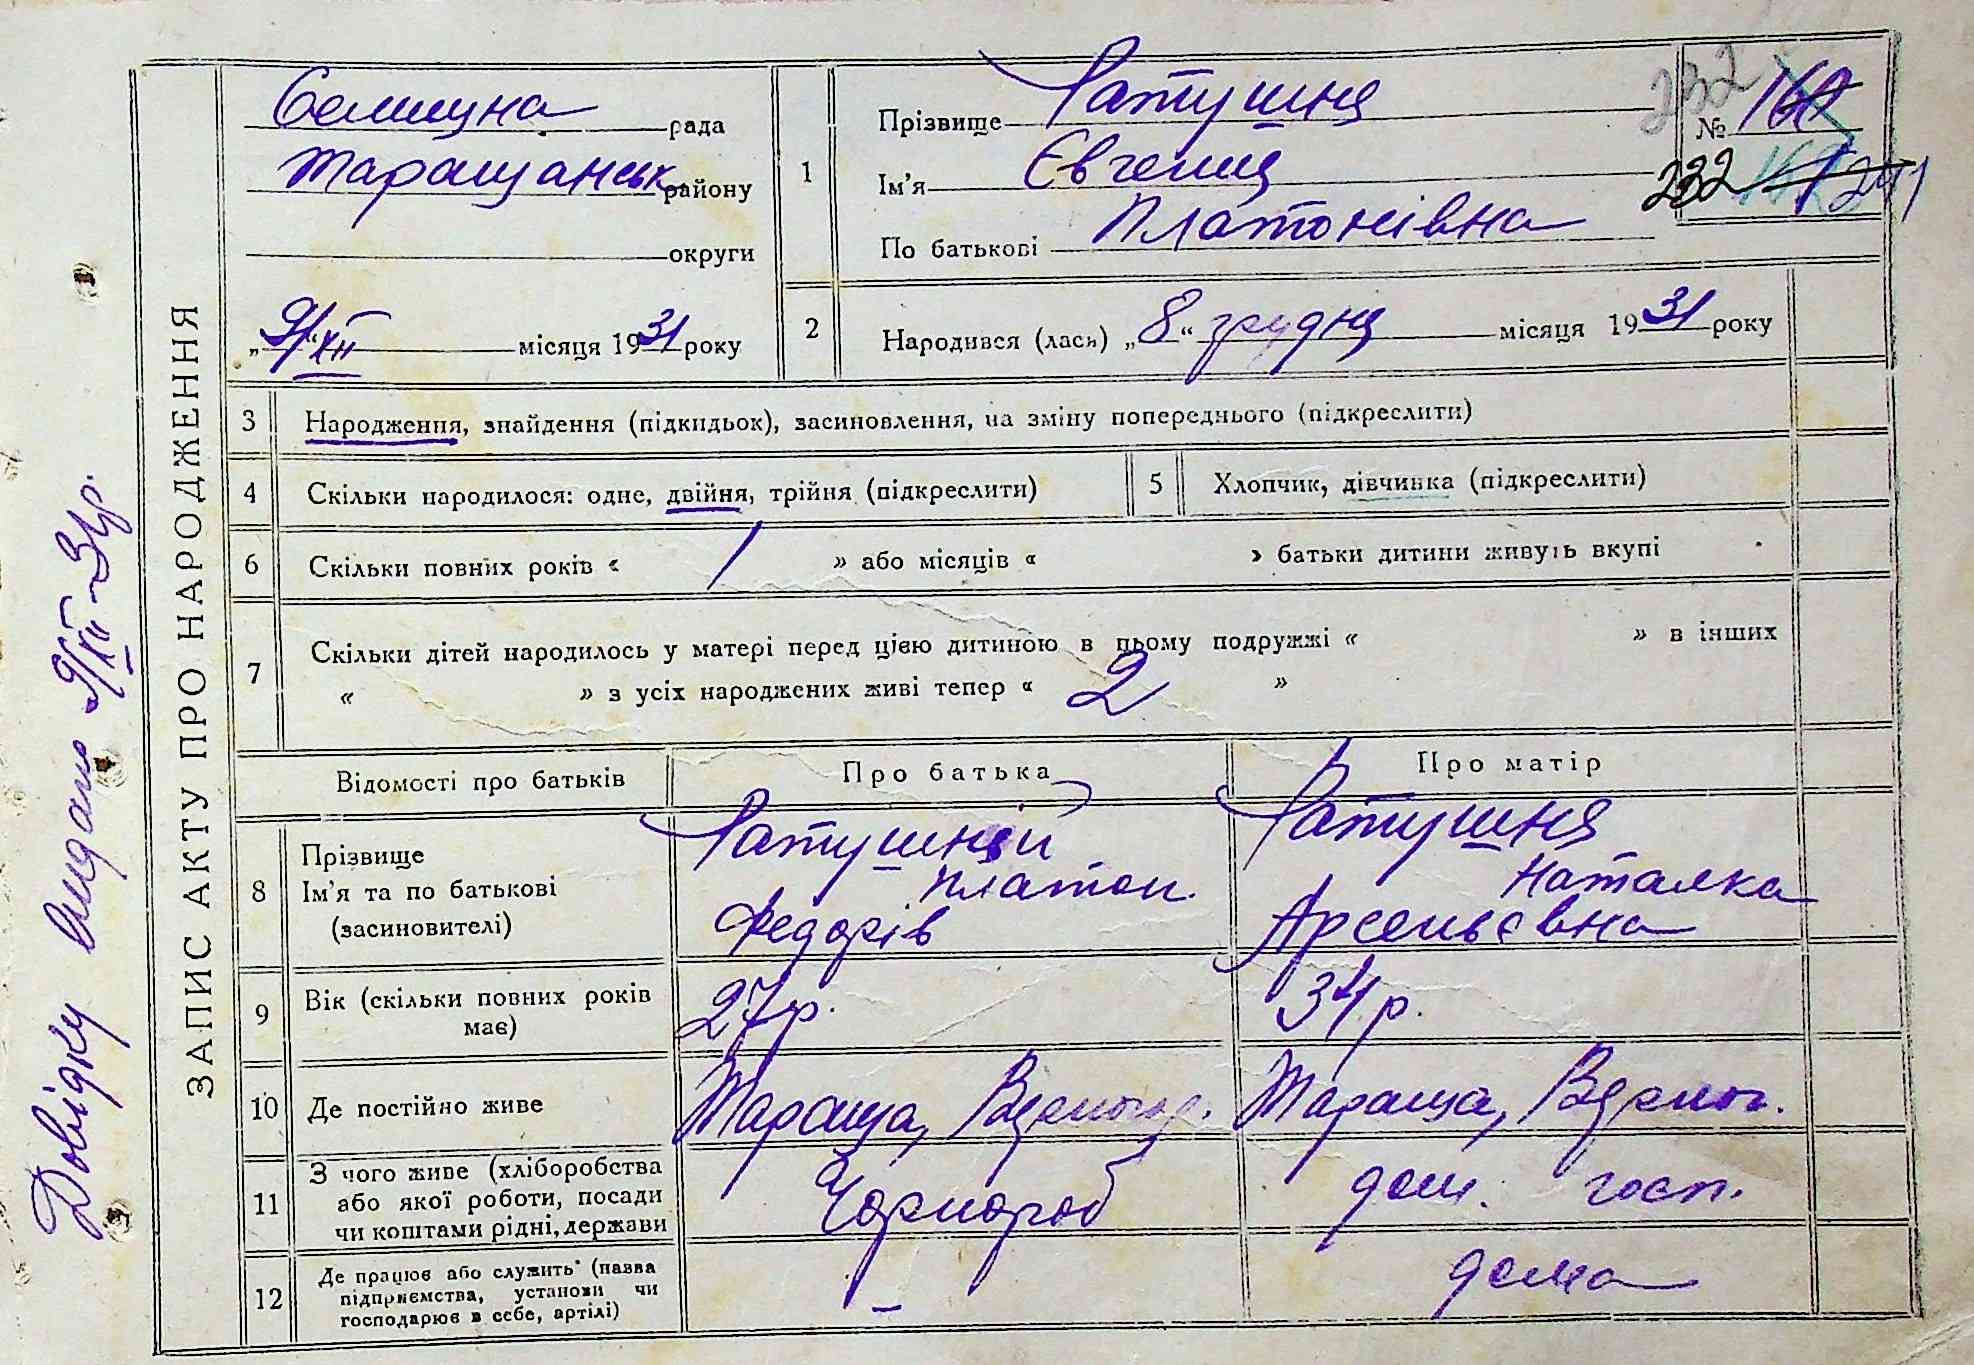 ЗАПИС АКТУ ПРО НАРОДЖЕННЯ
Довідку видано 9/XII-31р.
Селищна рада
Таращанськ району
округи
„9/XII“ місяця 1931 року
1 Прізвище Ратушня
Ім'я Євгенія
По батькові Платонівна
№
232
232
2 Народився (лася) „8“ грудня місяця 1931 року
3 Народження, знайдення (підкидьок), засиновлення, на зміну попереднього (підкреслити)
4 Скільки народилося: одне, двійня, трійня (підкреслити)
5 Хлопчик, дівчинка (підкреслити)
6 Скільки повних років « 1 » або місяців « » батьки дитини живуть вкупі
7 Скільки дітей народилось у матері перед цією дитиною в цьому подружжі « » в інших
« » з усіх народжених живі тепер « 2 »
Відомості про батьків Про батька Про матір
8 Прізвище
Ім'я та по батькові
(засиновителі)
Ратушний
Платон
Федорів
Ратушня
Наталка
Арсеньєвна
9 Вік (скільки повних років
має)
27р.
34р.
10 Де постійно живе
Тараща,
Тараща,
11 З чого живе (хліборобства
або якої роботи, посади
чи коштами рідні, держави
Чорнороб
дом. госп.
12 Де працює або служить (назва
підприємства, установи чи
господарює в себе, артілі)
–
дома